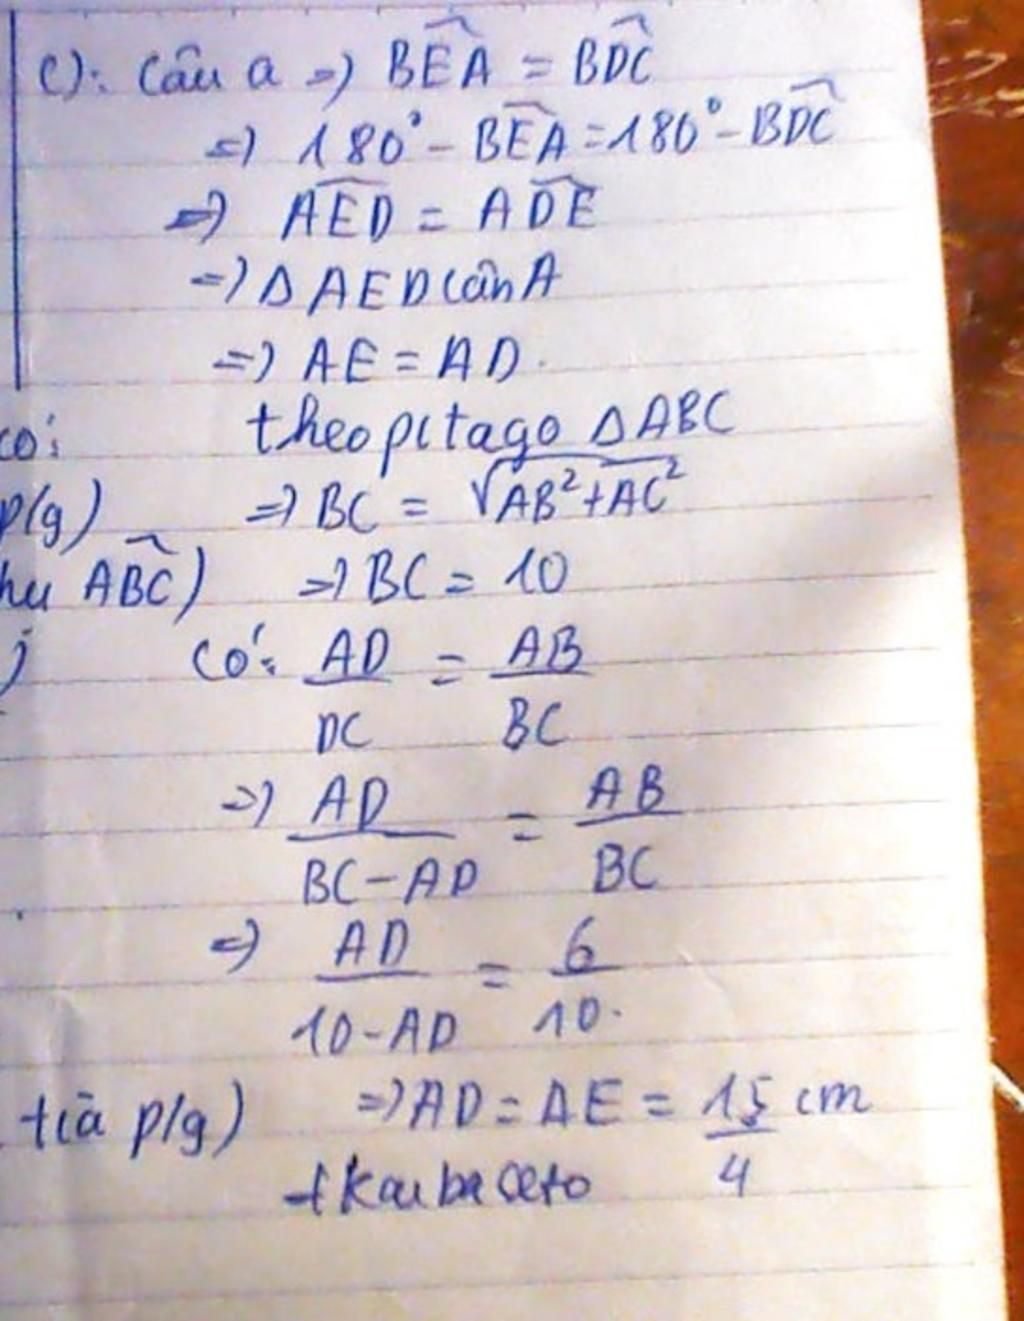 c): Câu a => BEA = BDC
=> 180° - BEA = 180° - BDC
=> AED = ADE
=> Δ AED cân A
=> AE = AD.
có: theo pitago Δ ABC
p/g) => BC = √AB²+AC²
ABC) => BC = 10
có: AD/DC = AB/BC
=> AD/BC-AD = AB/BC
=> AD/10-AD = 6/10.
tia p/g) => AD = AE = 15/4 cm